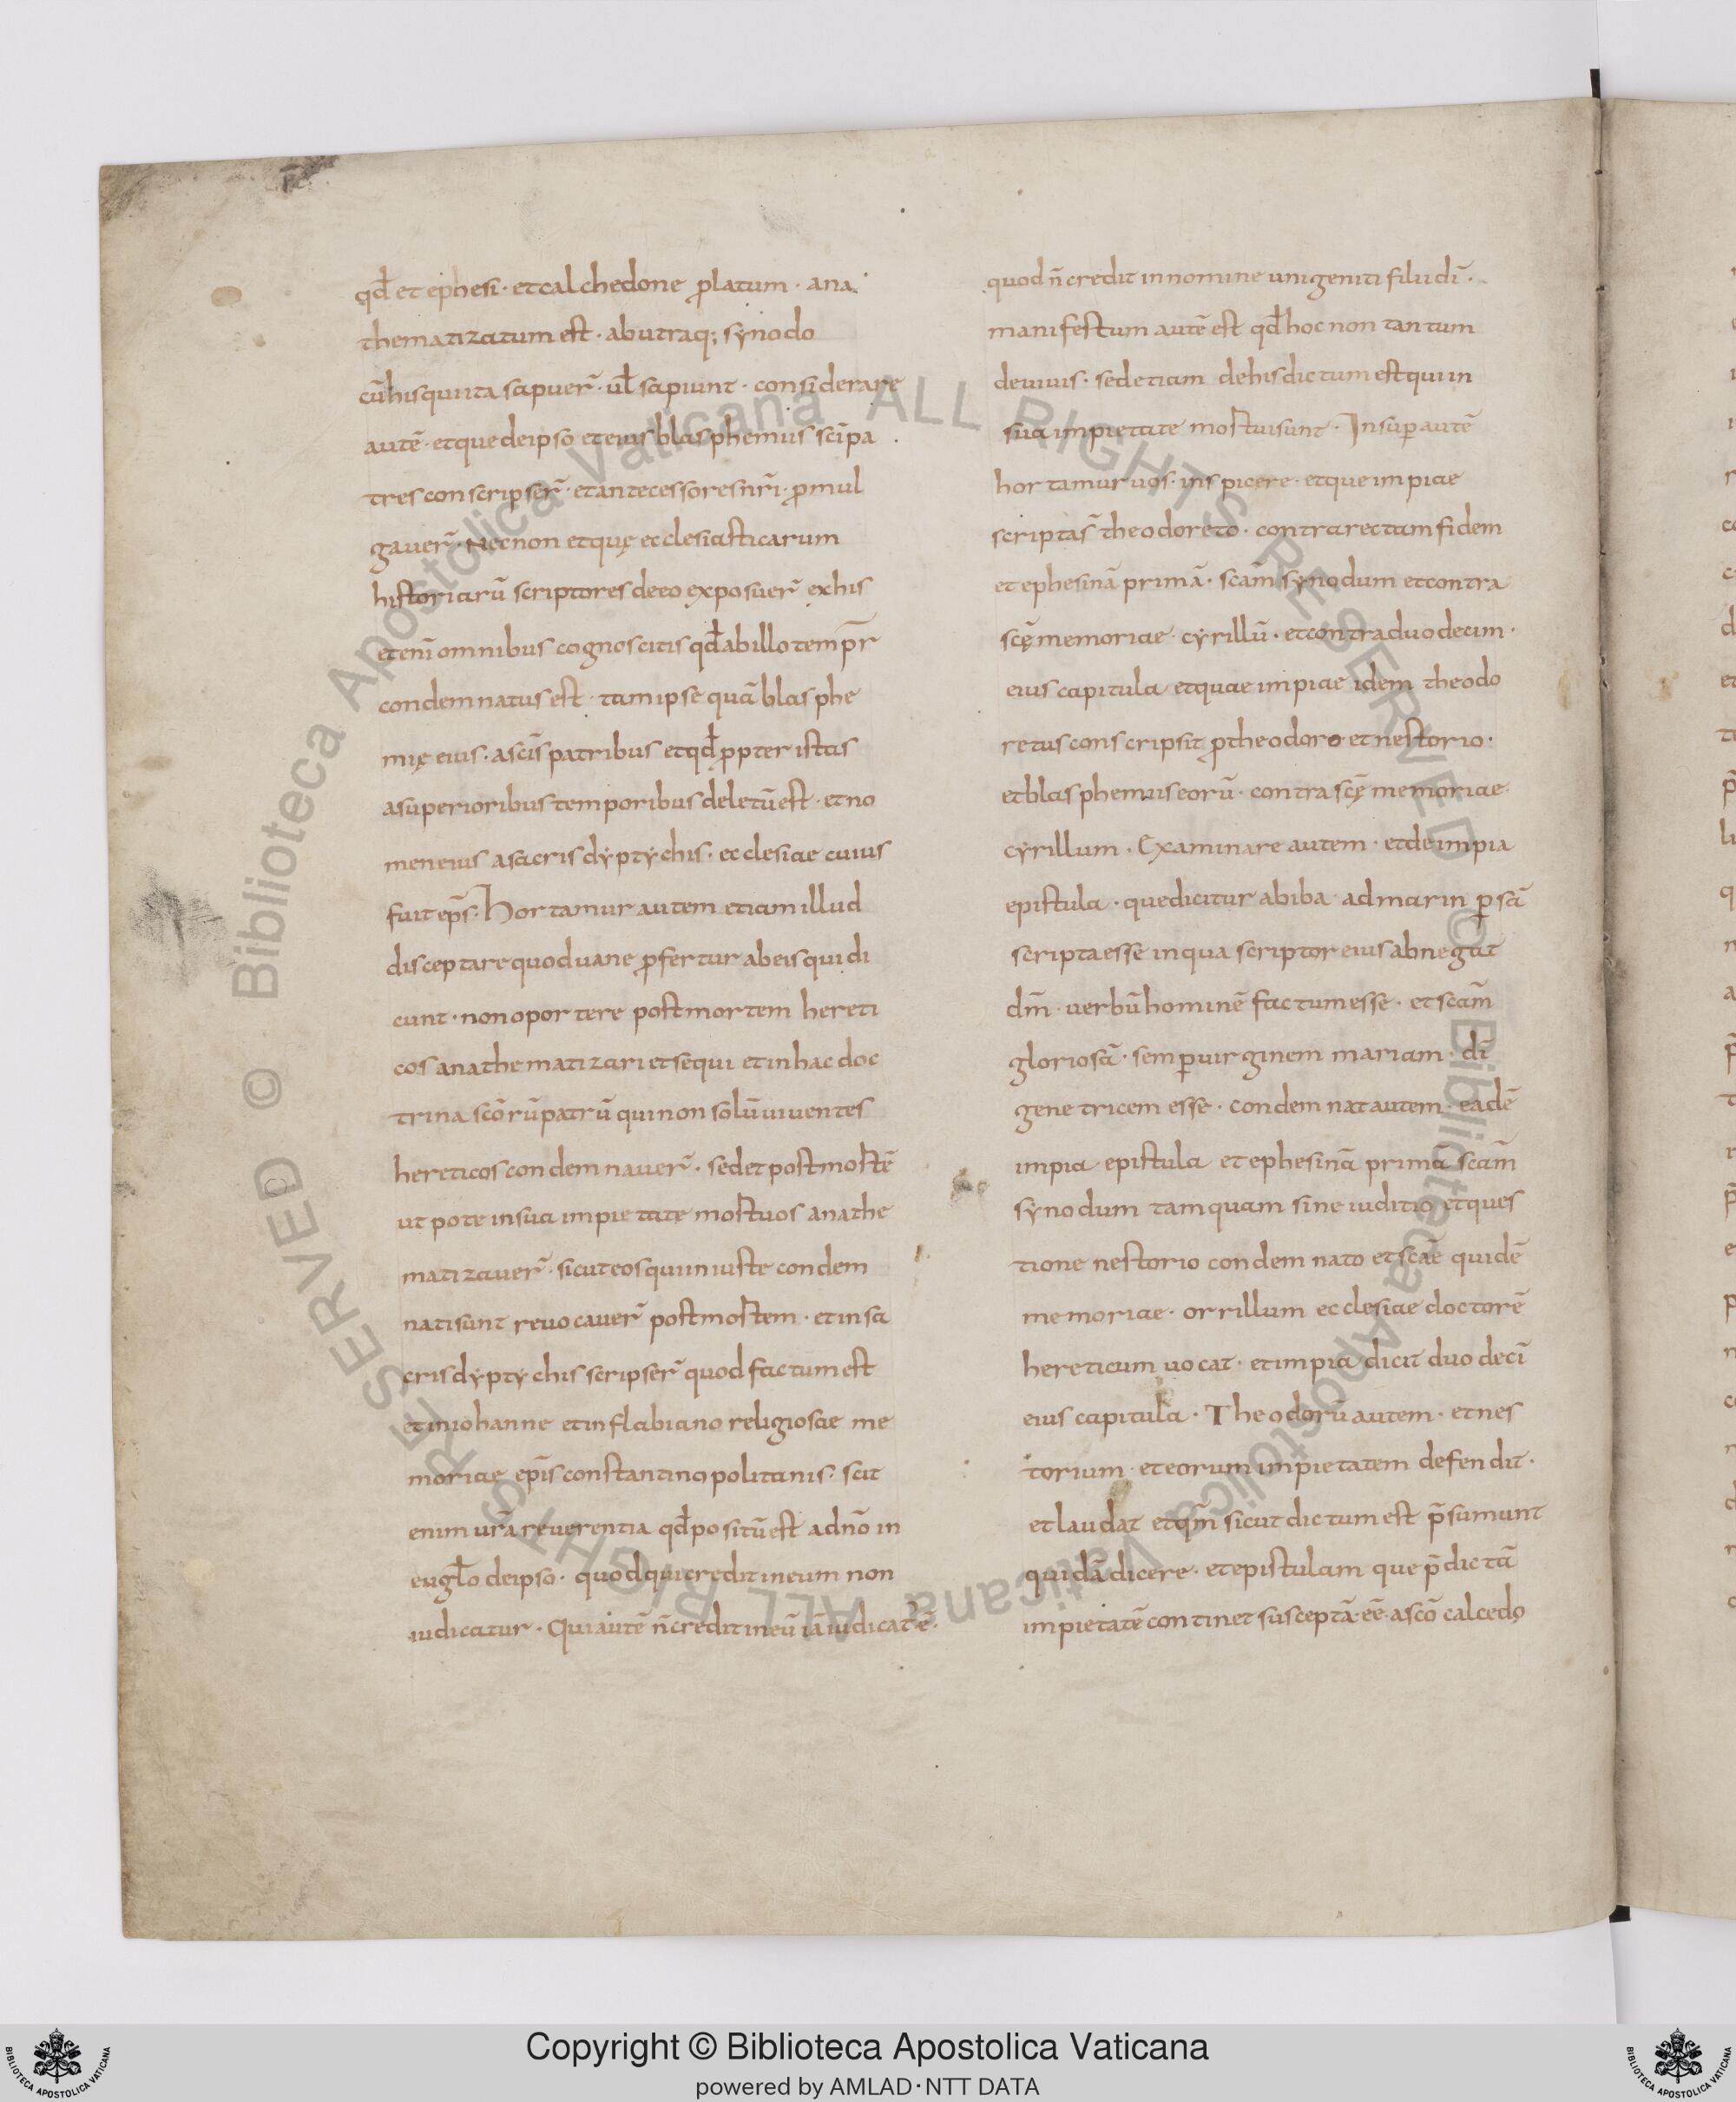 qđ et ephesi · et calchedone ꝓlatum · ana
thematizatum est · ab utraq; synodo
cū his qui ita sapuer̃ · ul̃ sapiunt · considerare
autē · et que de ipso et eius blasphemiis sc̄i pa
tres conscripser̃ · et antecessores nr̄i · ꝓmul
gauer̃ · Nec non et quę ecclesiasticarum
historiarū scriptores de eo exposuer̃ ex his
etenī omnibus cognoscitis qđ ab illo tempr̄
condemnatus est · tam ipse quā blasphe
mię eius · a sc̄is patribus et qđ ꝓpter istas
a superioribus temporibus deletū est · et no
men eius a sacris dyptychis · ecclesiae cuius
fuit ep̄s · Hortamur autem etiam illud
disceptare quod uane ꝓfertur ab eis qui di
cunt · non oportere post mortem hereti
cos anathematizari et sequi et in hac doc
trina sc̄orū patrū qui non solū uiuentes
hereticos condemnauer̃ · sed et post mortē
ut pote in sua impietate mortuos anathe
matizauer̃ · sicut eos qui iniuste condem
nati sunt reuocauer̃ post mortem · et in sa
cris dyptychis scripser̃ quod factum est
et in iohanne et in flabiano religiosae me
moriae ep̄is constantinopolitanis · scit
enim ur̄a reuerentia qđ positū est a dn̄o in
eugl̃o de ipso · quod qui credit in eum non
iudicatur · Qui autē n̄ credit in eū iā iudicat' ē ·
quod n̄ credit in nomine unigeniti filii dī ·
manifestum autē est qđ hoc non tantum
de uiuis · sed etiam de his dictum est qui in
sua impietate mortui sunt · Insup̱ autē
hortamur uos · inspicere · et que impiae
scripta s̄ theodoreto · contra rectam fidem
et ephesinā primā · sc̄am synodum et contra
sc̄ę memoriae · cyrillū · et contra duodecim ·
eius capitula et quae impiae idem theodo
retus conscripsit ꝓ theodoro et nestorio ·
et blasphemiis eorū · contra sc̄ę memoriae
cyrillum · Examinare autem · et de impia
epistula · que dicitur ab iba · ad marin p̱sā
scripta esse in qua scriptor eius abnegat
dm̄ · uerbū hominē factum esse · et sc̄am
gloriosā · semp̱ uirginem mariam · dī
genetricem esse · condemnat autem · eadē
impia epistula et ephesinā primā sc̄am
synodum tamquam sine iuditio et ques
tione nestorio condemnato et sc̄ae quidē
memoriae · orrillum ecclesiae doctorē
hereticum uocat · et impia dicit duodecī
eius capitula · Theodorū autem · et nes
torium · et eorum impietatem defendit ·
et laudat et qm̄ sicut dictum est p̄sumunt
quidā dicere · et epistulam que p̄dictā
impietatē continet susceptā · eē · a sc̄o calcedo
Copyright © Biblioteca Apostolica Vaticana
powered by AMLAD·NTT DATA